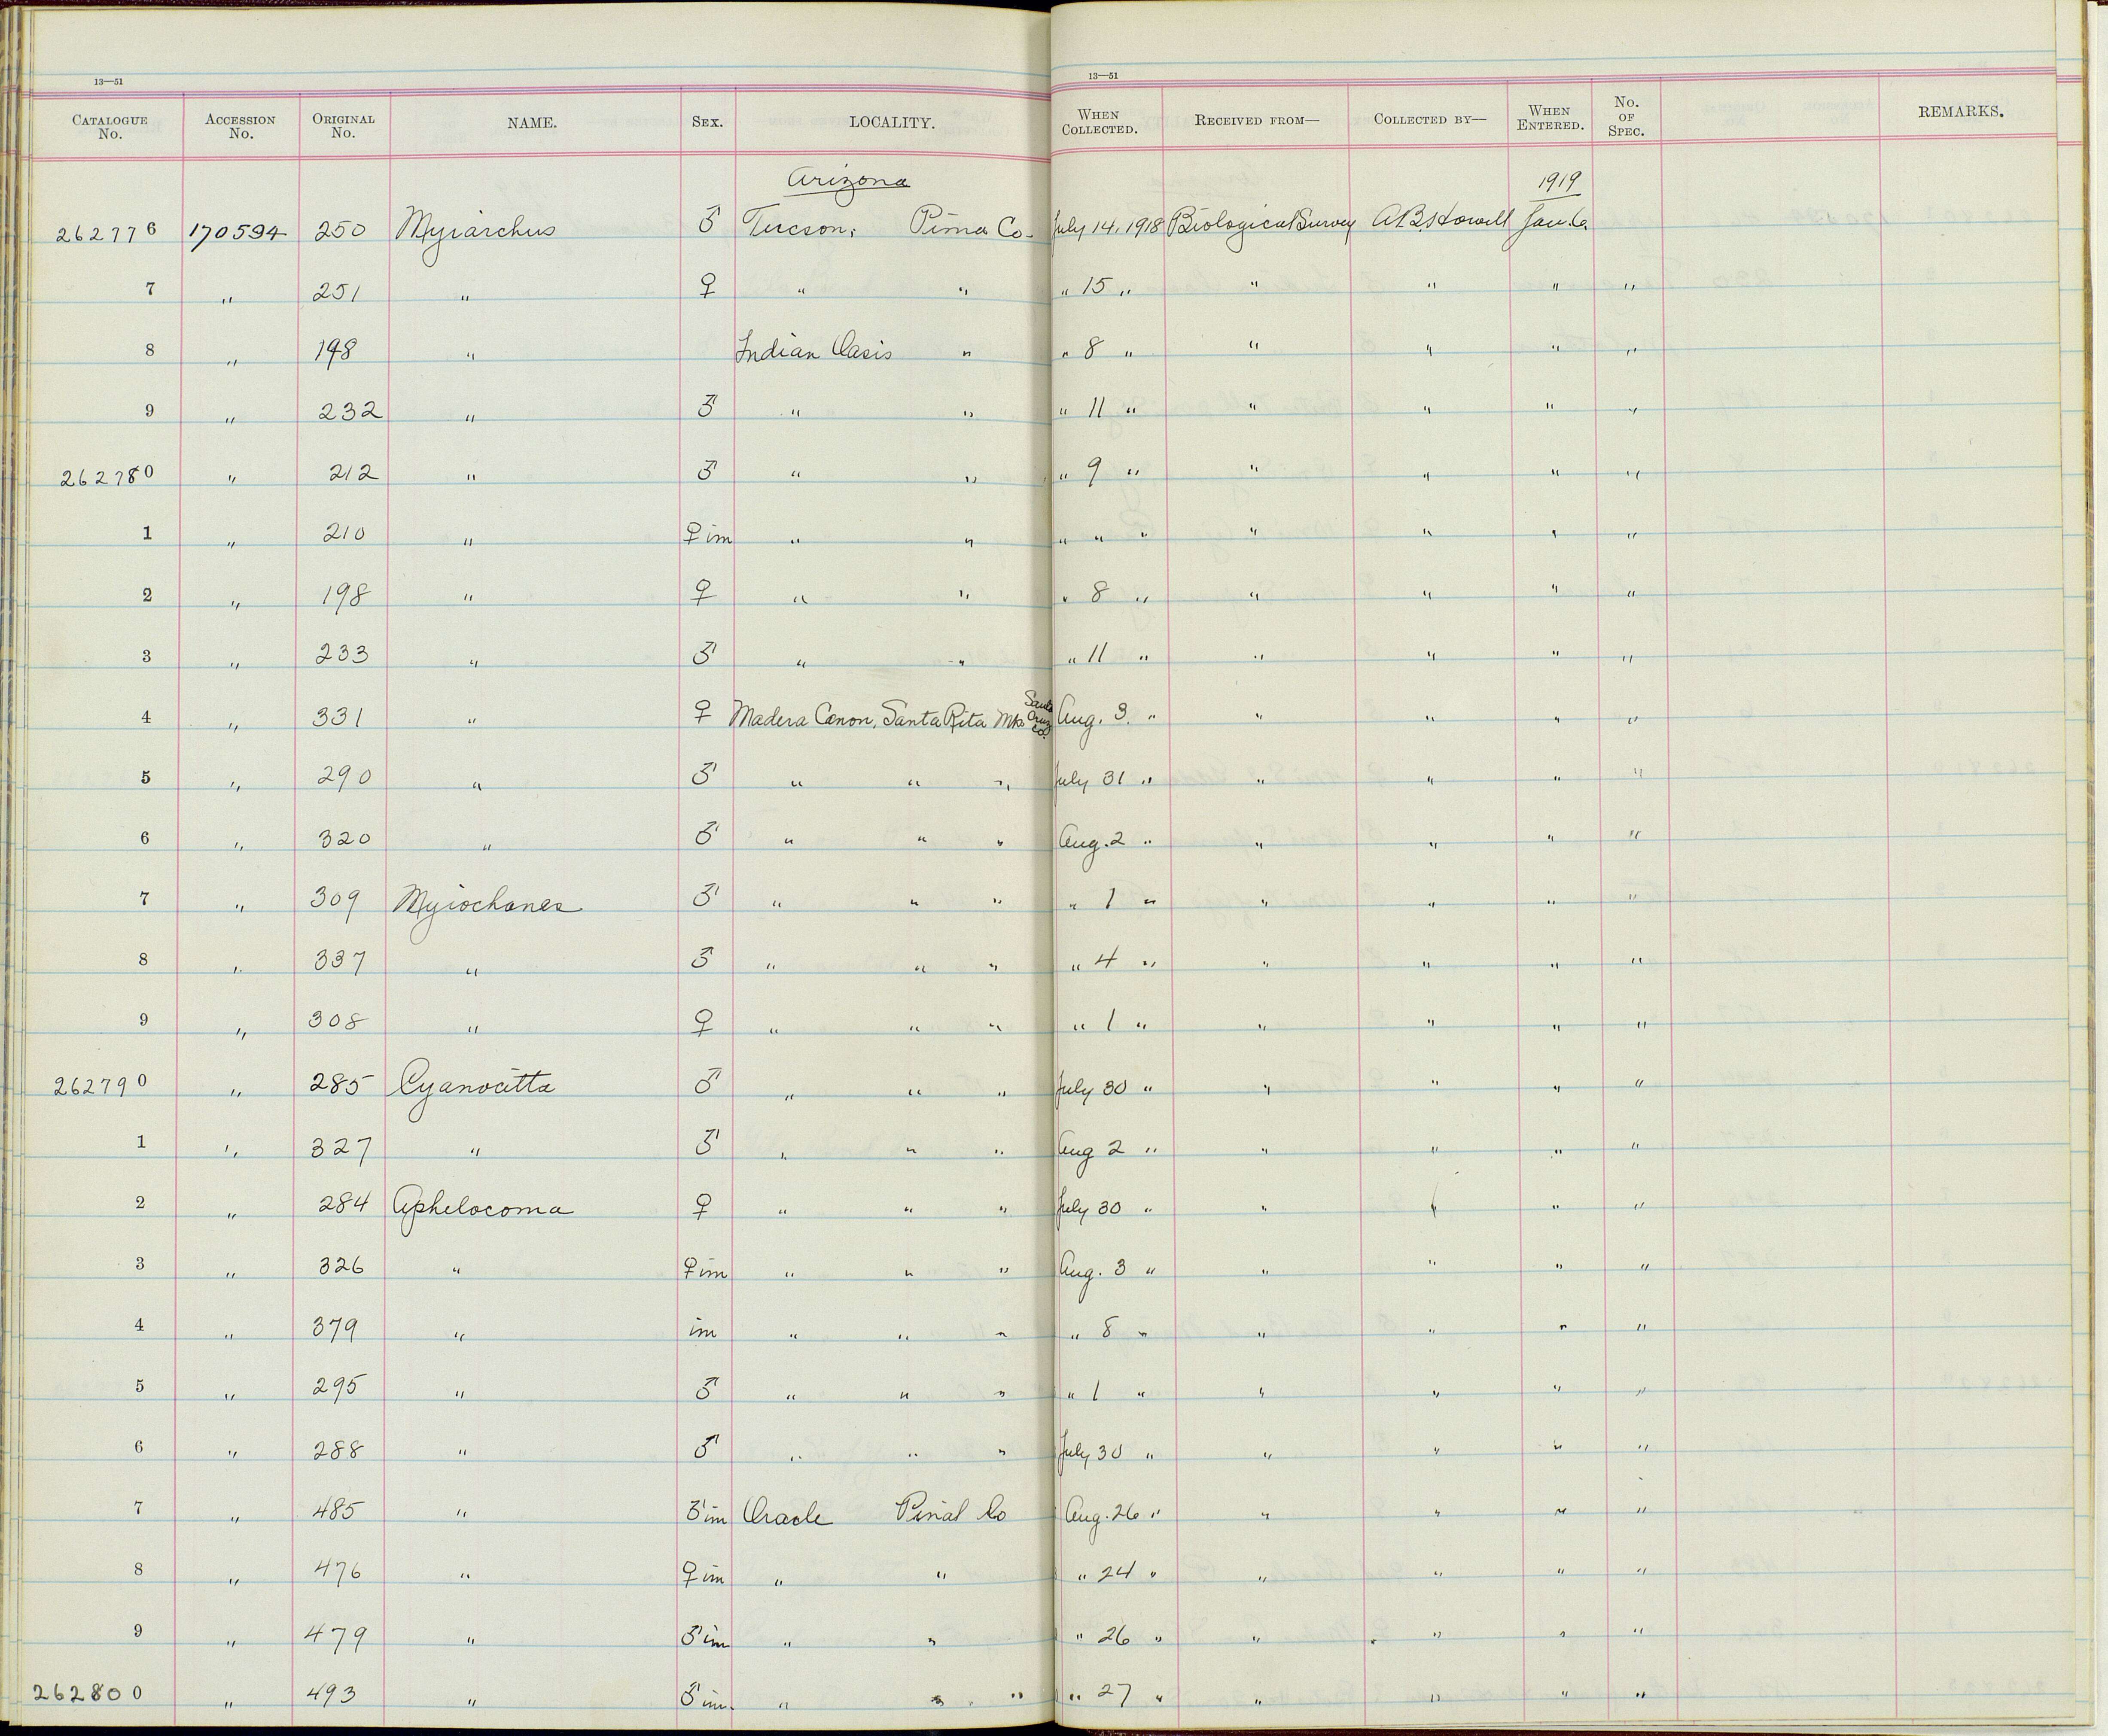 13—51 13—51
CATALOGUE No. ACCESSION No. ORIGINAL No. NAME. SEX. LOCALITY. WHEN COLLECTED. RECEIVED FROM— COLLECTED BY— WHEN ENTERED. No. OF SPEC. REMARKS.
Arizona 1919
262776 170594 250 Myiarchus ♂ Tucson, Pima Co. July 14, 1918 Biological Survey A.B. Howell Jan. 6.
7 " 251 " ♀ " " " 15 " " " " "
8 " 198 " Indian Oasis " " 8 " " " " "
9 " 232 " ♂ " " " 11 " " " " "
262780 " 212 " ♂ " " " 9 " " " " "
1 " 210 " ♀ im " " " " " " " " "
2 " 198 " ♀ " " " 8 " " " " "
3 " 233 " ♂ " " " 11 " " " " "
4 " 331 " ♀ Madera Canon, Santa Rita Mts. Santa Cruz Co. Aug. 3. " " " " "
5 " 290 " ♂ " " " July 31 " " " " "
6 " 320 " ♂ " " " Aug. 2 " " " " "
7 " 309 Myiochanes ♂ " " " " 1 " " " " "
8 " 337 " ♂ " " " " 4 " " " " "
9 " 308 " ♀ " " " " 1 " " " " "
262790 " 285 Cyanocitta ♂ " " " July 30 " " " " "
1 " 327 " ♂ " " " Aug 2 " " " " "
2 " 284 Aphelocoma ♀ " " " July 30 " " " " "
3 " 326 " ♀ im " " " Aug. 3 " " " " "
4 " 379 " im " " " " 8 " " " " "
5 " 295 " ♂ " " " " 1 " " " " "
6 " 288 " ♂ " " " July 30 " " " " "
7 " 485 " ♂ im Oracle Pinal Co Aug. 26 " " " " "
8 " 476 " ♀ im " " " 24 " " " " "
9 " 479 " ♂ im " " " 26 " " " " "
262800 " 493 " ♂ im. " " " " 27 " " " " "